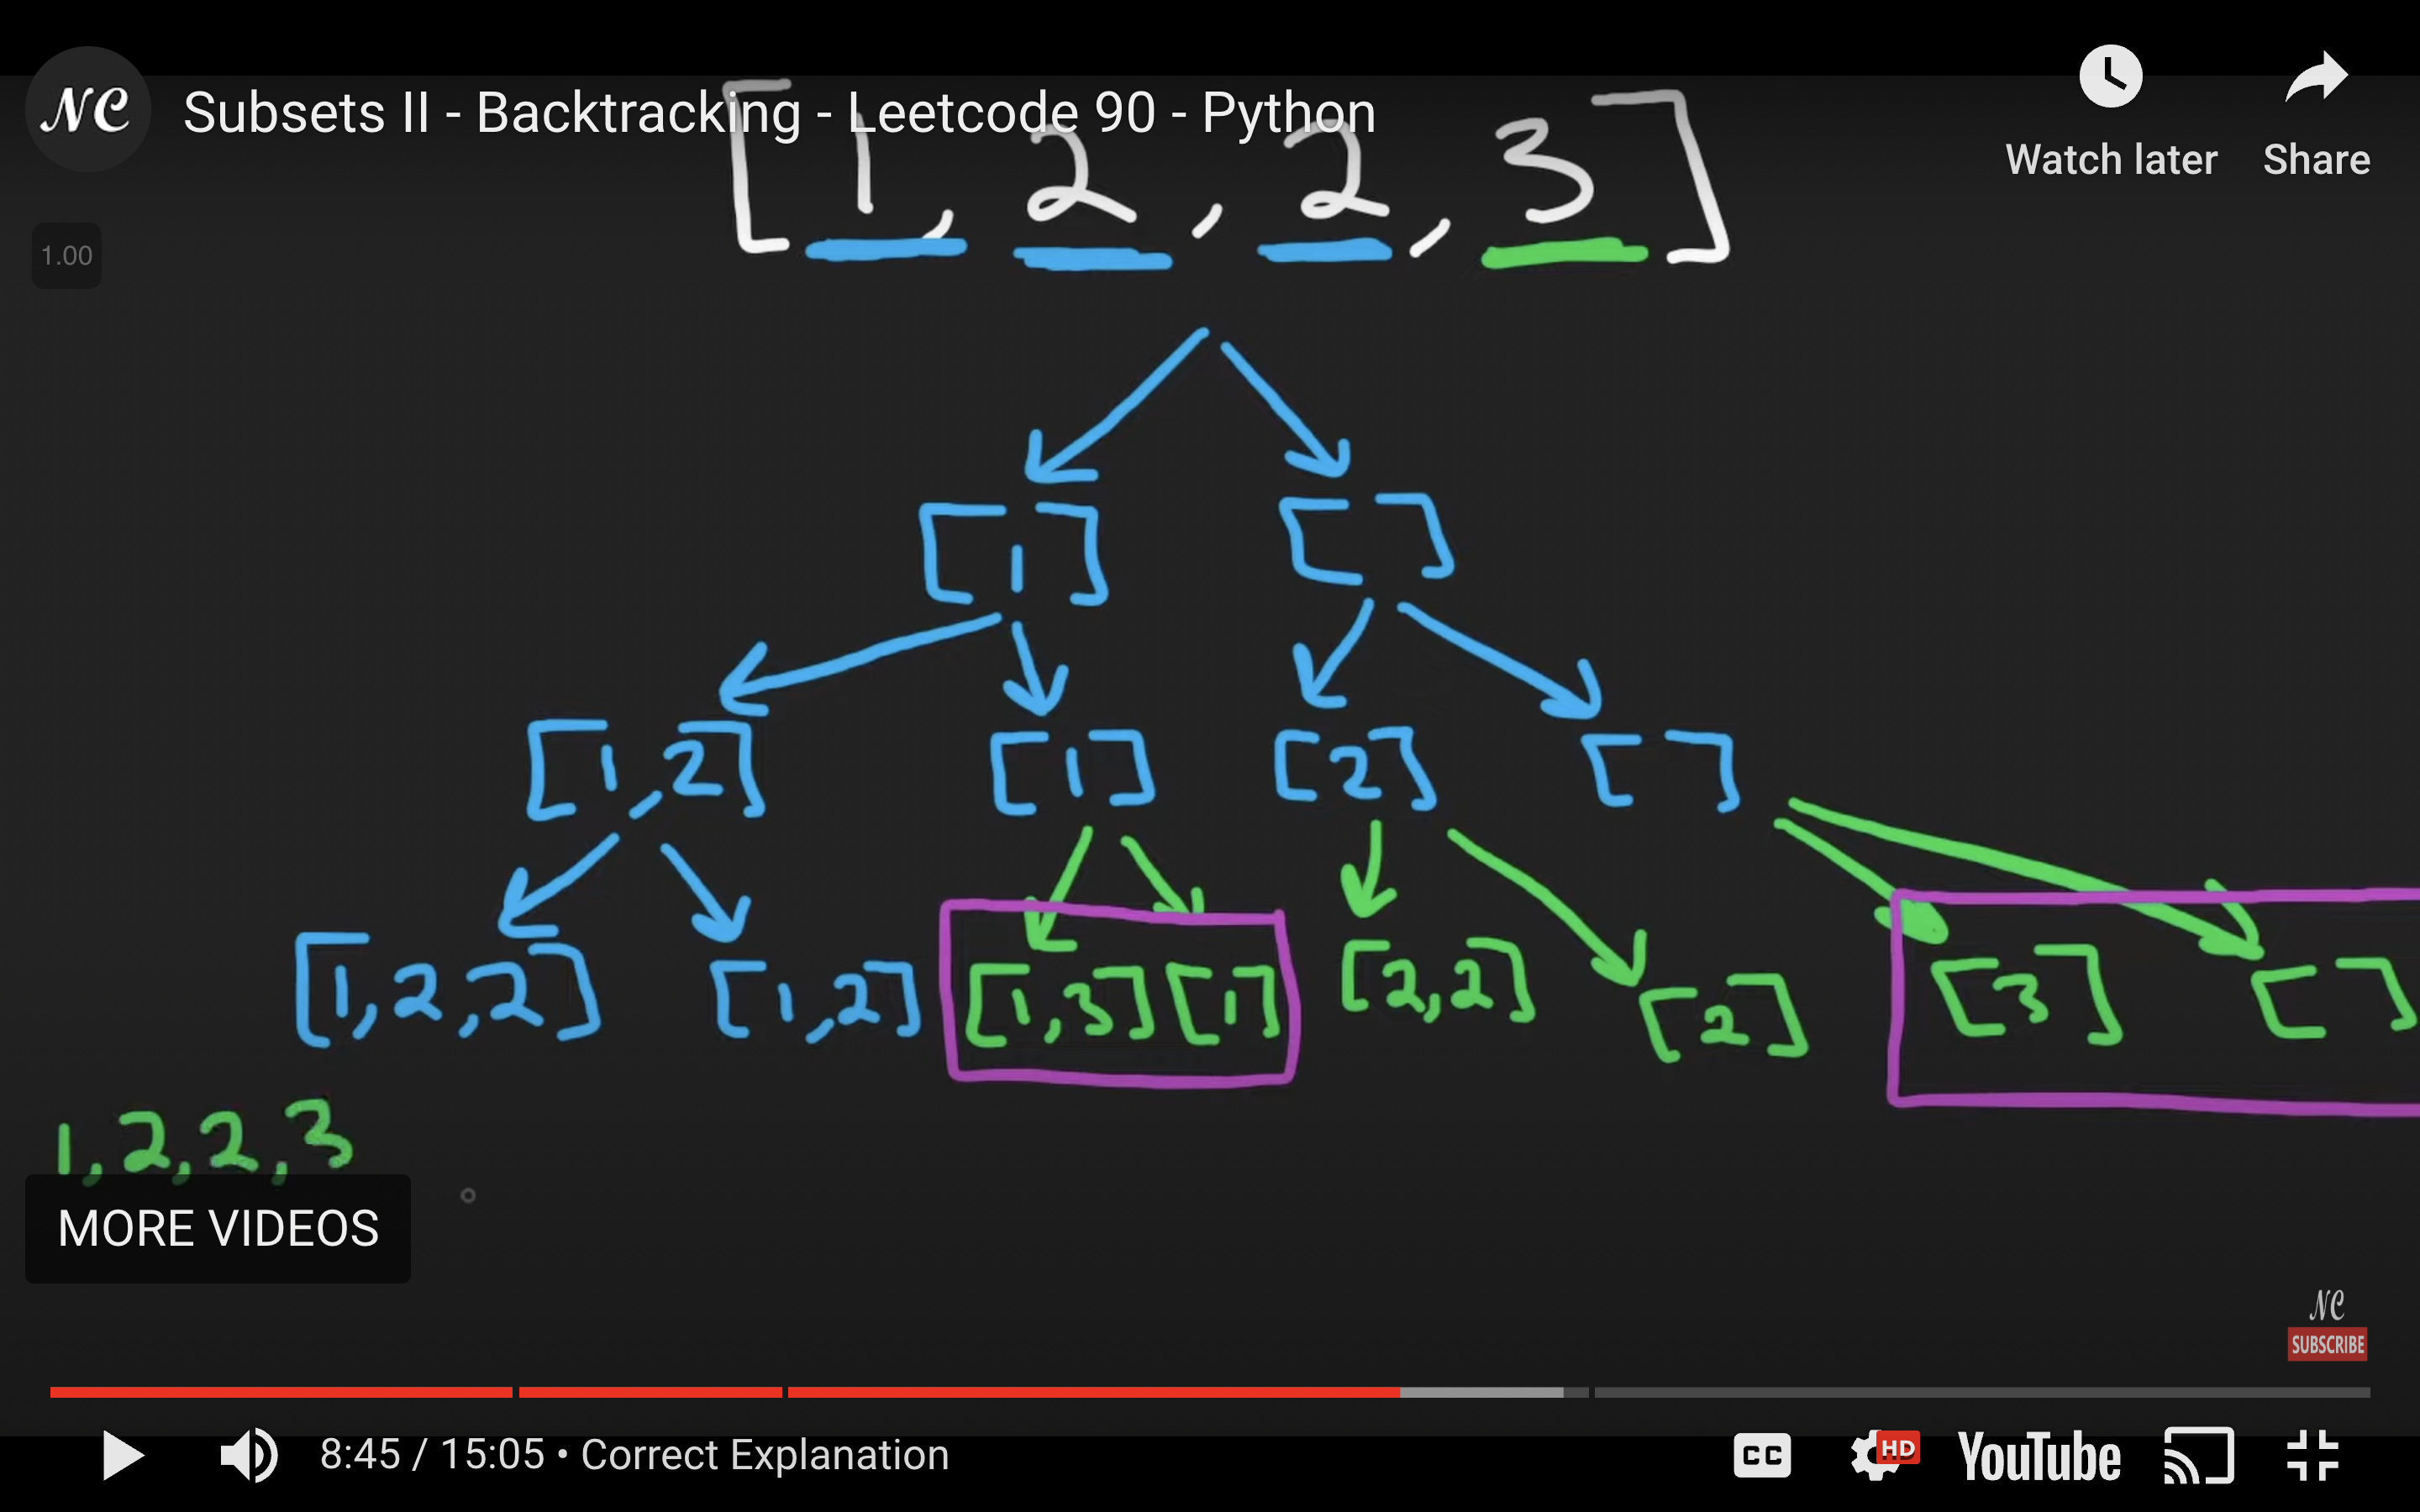 NC Subsets II - Backtracking - Leetcode 90 - Python
Watch later Share
[1, 2, 2, 3]
1.00
[1] [ ]
[1,2] [1] [2] [ ]
[1,2,2] [1,2] [1,3] [1] [2,2] [2] [3] [ ]
1,2,2,3
MORE VIDEOS
NC
SUBSCRIBE
8:45 / 15:05 • Correct Explanation CC HD YouTube